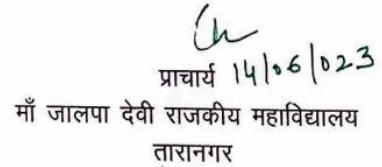 प्राचार्य 14/06/023
माँ जालपा देवी राजकीय महाविद्यालय
तारानगर